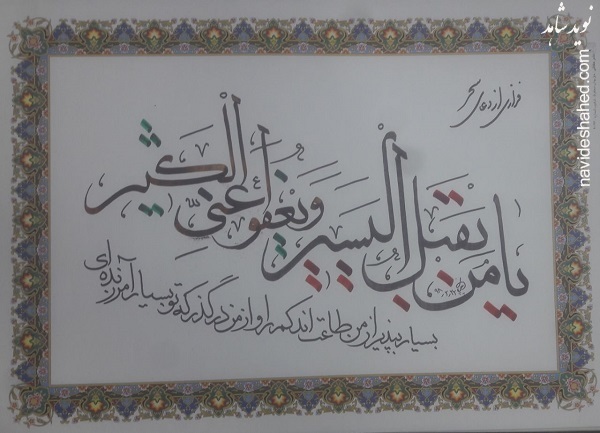 نوید شاهد
navideshahed.com
فرازی از دعای سحر
یا من یقبل الیسیر و یعفو عن الکثیر
بسیار بپذیر از من طاعت اندکم را و از من درگذر که تو بسیار آمرزنده‌ای